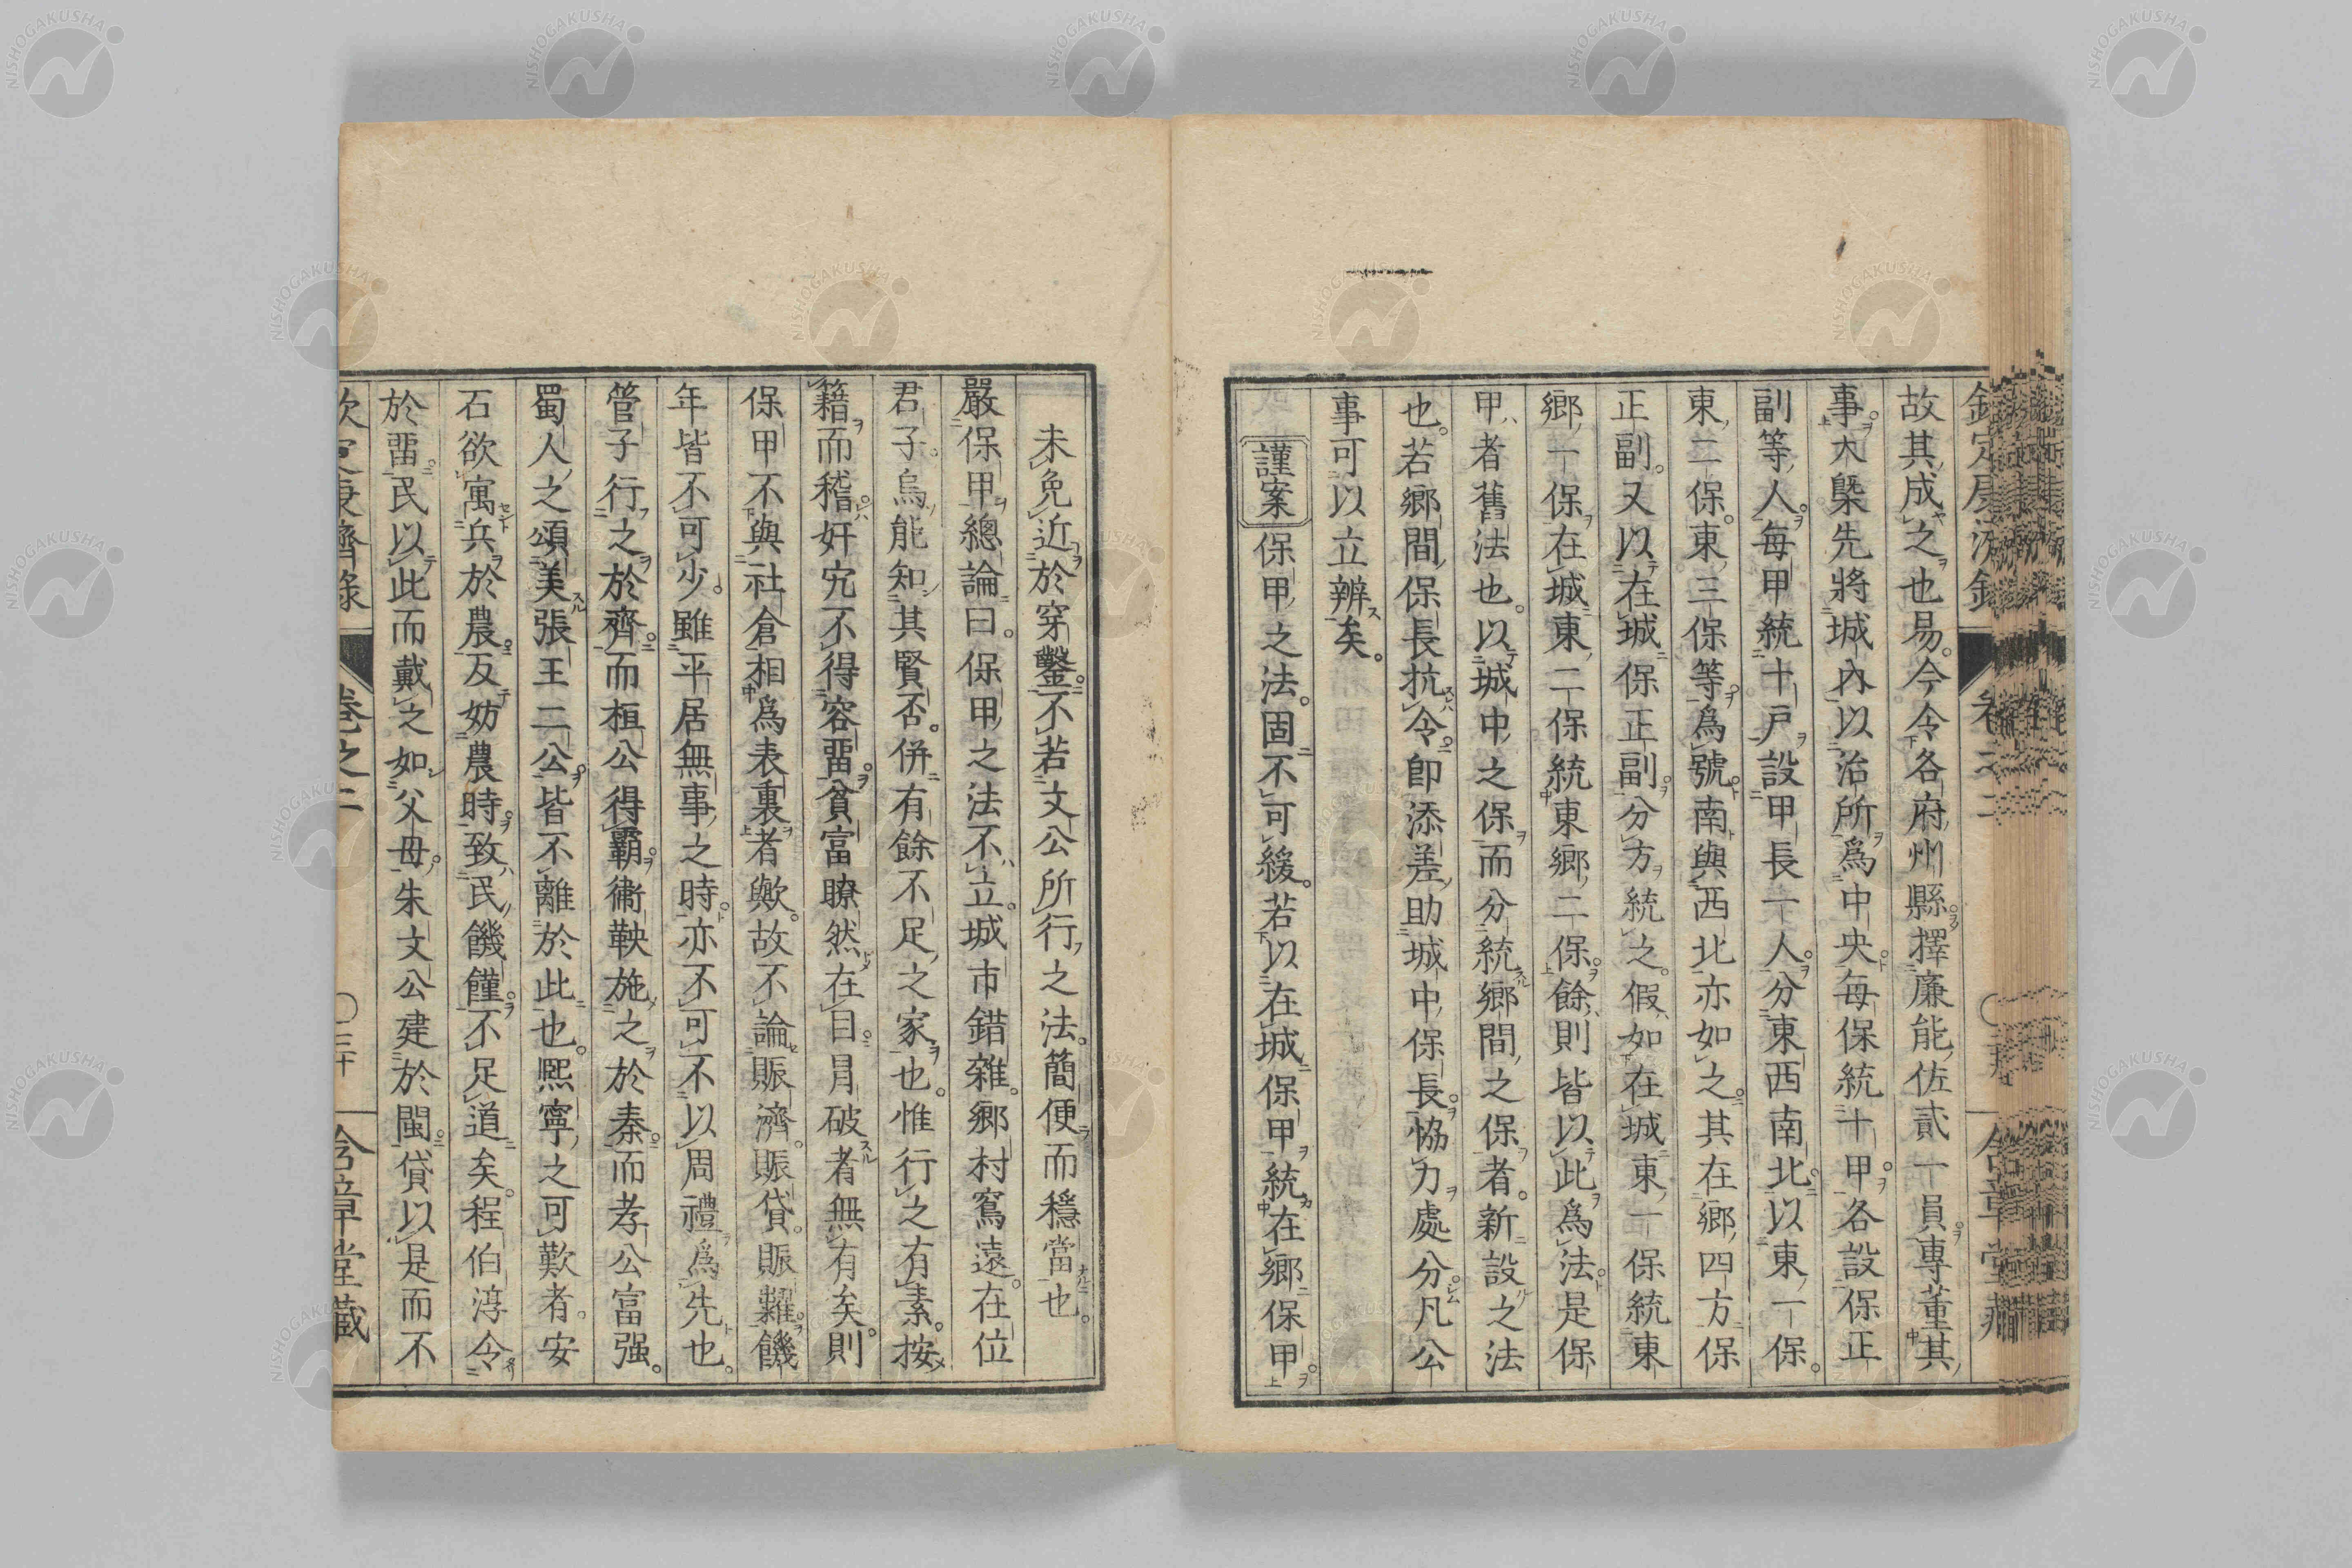 故其成之也易。今令各府州縣擇廉能佐貳一員專董其
事。大槩先將城內以治所爲中央每保統十甲各設保正
副等人。每甲統十戶設甲長一人。分東西南北以東一保。
東二保。東三保等爲號。南與西北亦如之。其在鄉四方保
正副。又以在城保正副分方統之。假如在城東一保統東
鄉一保在城東二保統東鄉二保餘則皆以此爲法。是保
甲者舊法也。以城中之保而分統鄉間之保者。新設之法
也。若鄉間保長抗令。卽添差助城中保長協力處分。凡公
事可以立辨矣。
謹案保甲之法。固不可緩。若以在城保甲統在鄉保甲。
未免近於穿鑿。不若文公所行之法。簡便而穩當也。
嚴保甲總論曰。保甲之法不立。城市錯雜。鄉村寫遠。在位
君子。烏能知其賢否。併有餘不足之家也。惟行之有素。按
籍而稽。奸宄不得容畱。貧富瞭然在目。冒破者無有矣。則
保甲不與社倉相爲表裏者歟。故不論賑濟。賑貸。賑糶。饑
年皆不可少。雖平居無事之時。亦不可不以周禮爲先也。
管子行之於齊。而桓公得霸。衞鞅施之於秦。而孝公富强。
蜀人之頌美張王二公。皆不離於此也。熙寧之可歎者。安
石欲寓兵於農。反妨農時。致民饑饉。不足道矣。程伯淳令
於畱。民以此而戴之如父母。朱文公建於閩。貸以是而不
卷之二
三十